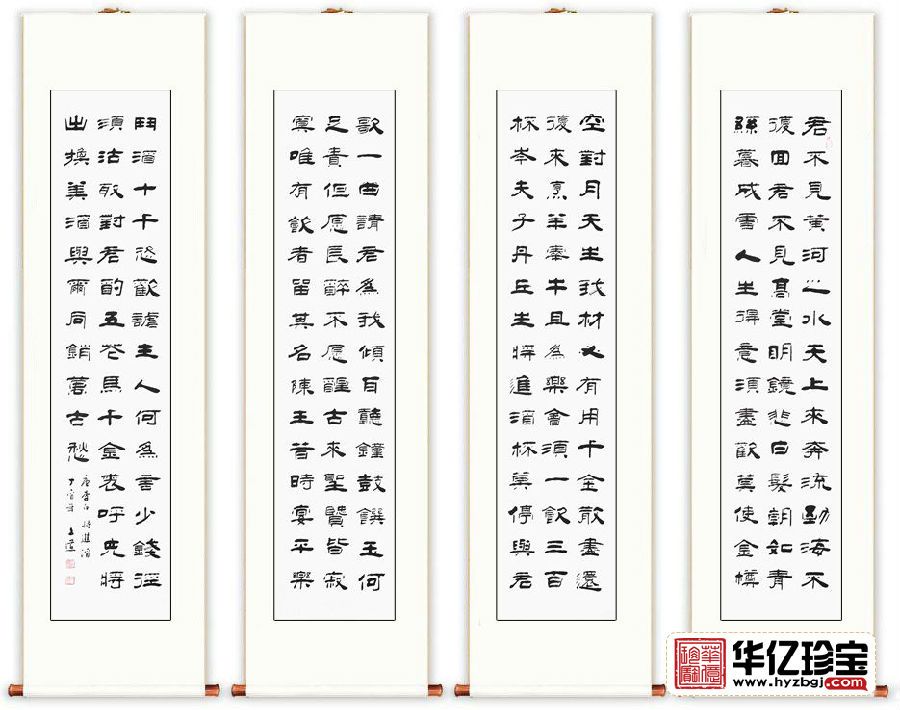 君不見黃河之水天上來奔流到海不
復回君不見高堂明鏡悲白髮朝如青
絲暮成雪人生得意須盡歡莫使金樽
空對月天生我材必有用千金散盡還
復來烹羊宰牛且為樂會須一飲三百
杯岑夫子丹丘生將進酒杯莫停與君
歌一曲請君為我傾耳聽鐘鼓饌玉何
足貴但願長醉不願醒古來聖賢皆寂
寞唯有飲者留其名陳王昔時宴平樂
鬥酒十千恣歡謔主人何為言少錢徑
須沽取對君酌五花馬千金裘呼兒將
出換美酒與爾同銷萬古愁
唐李白將進酒
华亿珍宝
www.hyzbgj.com